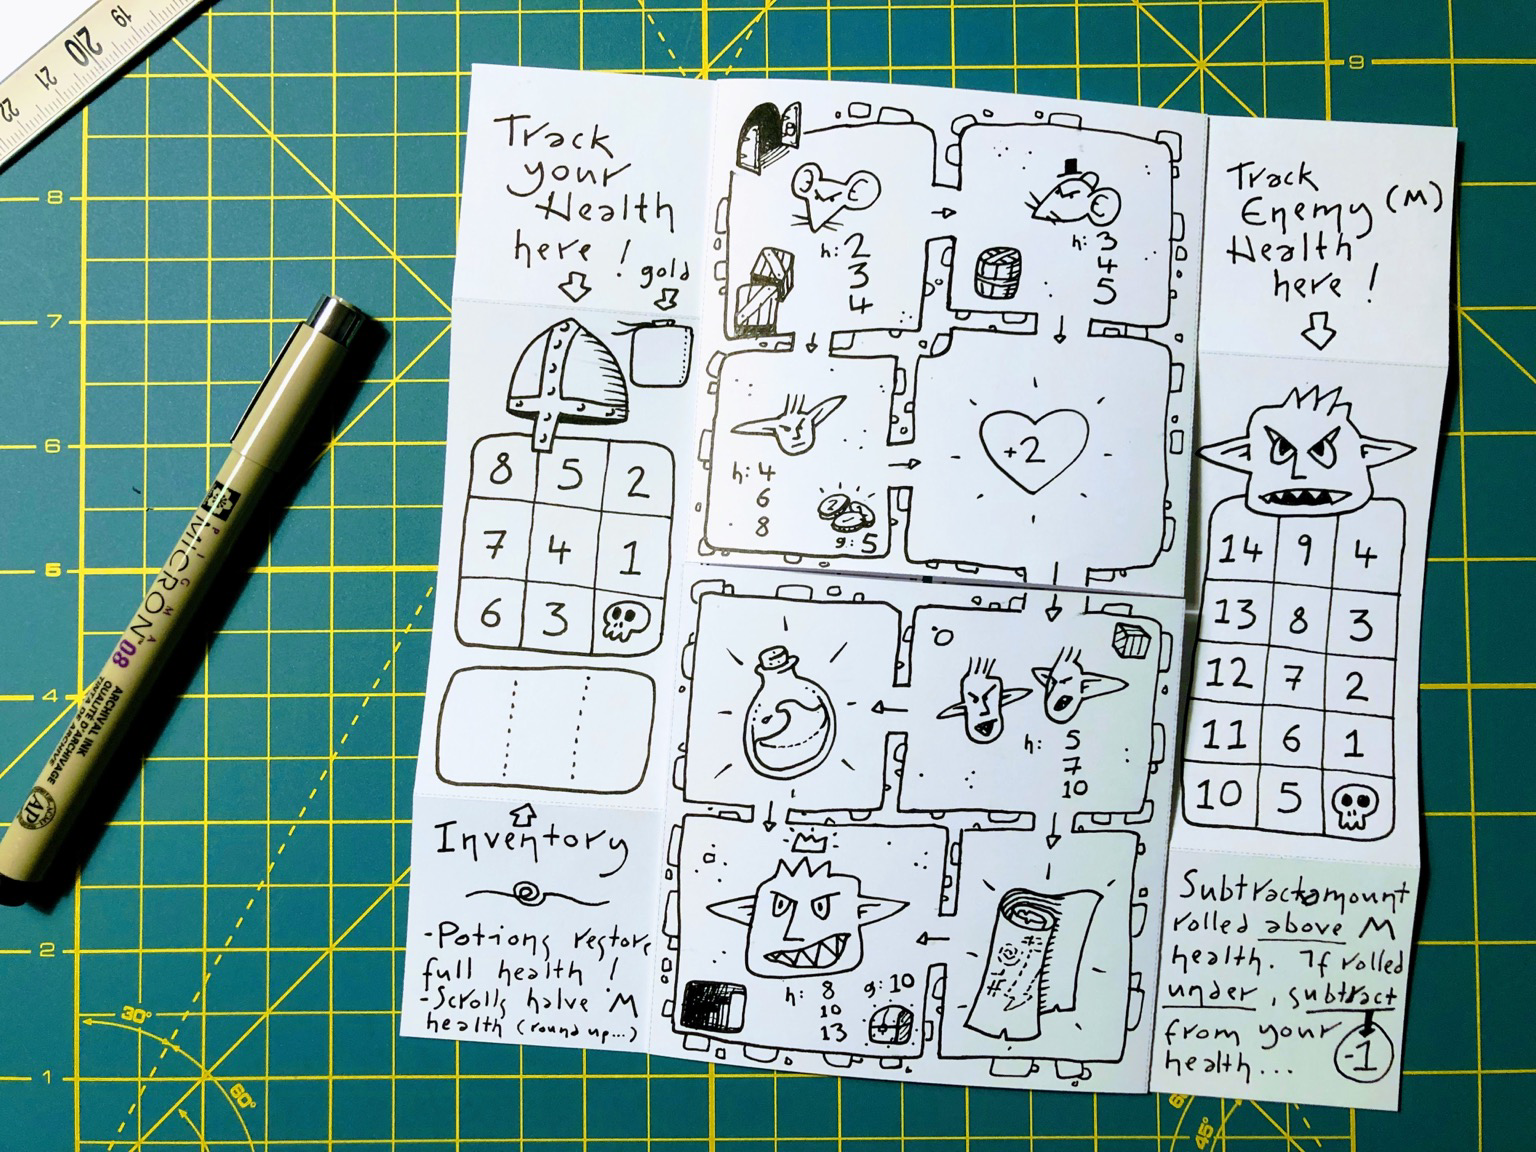 Track
your
Health
here !
gold
8 5 2
7 4 1
6 3
Inventory
-Potions restore
full health !
-Scrolls halve M
health (round up...)
h: 2
3
4
h: 3
4
5
h: 4
6
8
g: 5
+2
h: 5
7
10
h: 8
10
13
g: 10
Track
Enemy (M)
Health
here !
14 9 4
13 8 3
12 7 2
11 6 1
10 5
Subtract amount
rolled above M
health. If rolled
under, subtract
from your
health...
-1
PIGMA
MICRON 08
ARCHIVAL INK
QUALITÉ D'ARCHIVAGE
TINTA DE ARCHIVE
AP
19
20
21
22
9
8
7
6
5
4
3
2
1
30°
60°
45°